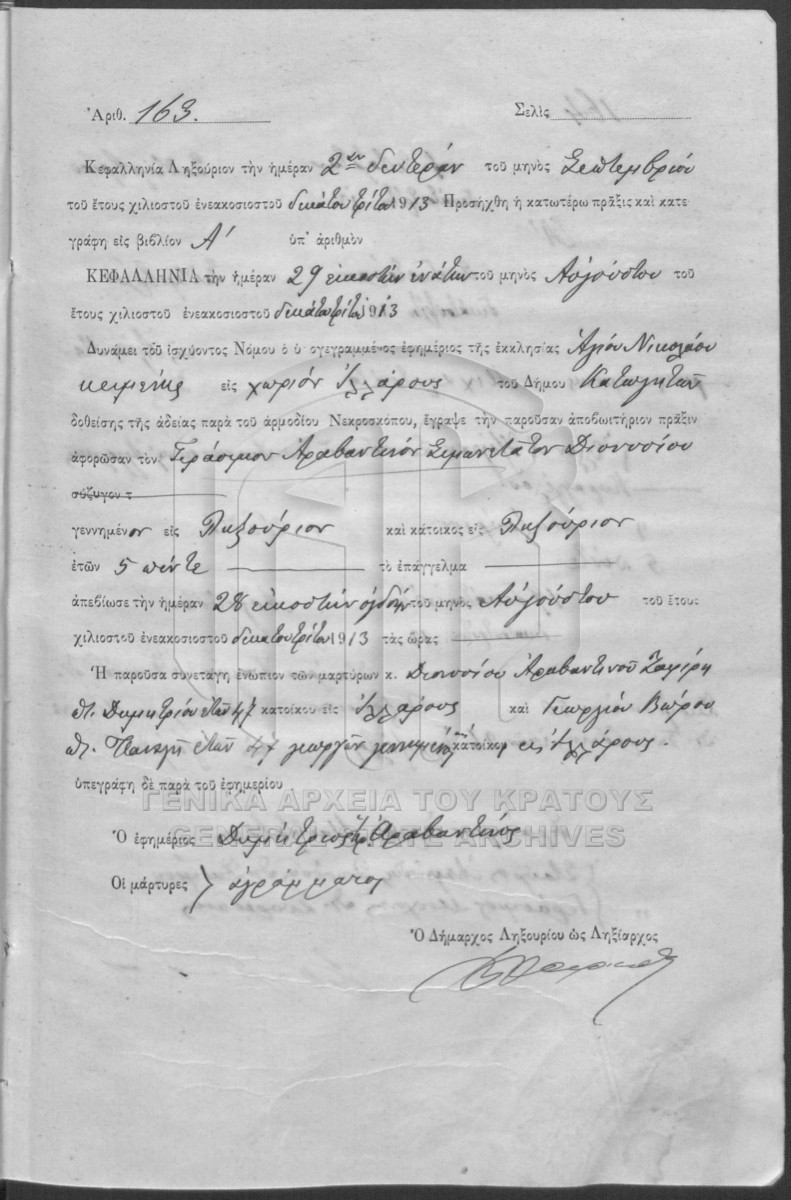 Ἀριθ. 163. Σελὶς
Κεφαλληνία Ληξούριον τὴν ἡμέραν 2αν δευτέραν τοῦ μηνὸς Σεπτεμβρίου
τοῦ ἔτους χιλιοστοῦ ἐνεακοσιοστοῦ δεκάτου τρίτου 1913 Προσήχθη ἡ κατωτέρω πρᾶξις καὶ κατε
γράφη εἰς βιβλίον Α' ὑπ' ἀριθμὸν
ΚΕΦΑΛΛΗΝΙΑ τὴν ἡμέραν 29 εἰκοστὴν ἐνάτην τοῦ μηνὸς Αὐγούστου τοῦ
ἔτους χιλιοστοῦ ἐνεακοσιοστοῦ δεκάτου τρίτου 1913
Δυνάμει τοῦ ἰσχύοντος Νόμου ὁ ὑπογεγραμμένος ἐφημέριος τῆς ἐκκλησίας Ἁγίου Νικολάου
κειμένης εἰς χωρίον τοῦ Δήμου
δοθείσης τῆς ἀδείας παρὰ τοῦ ἁρμοδίου Νεκροσκόπου, ἔγραψε τὴν παροῦσαν ἀποβιωτήριον πρᾶξιν
ἀφορῶσαν τὸν Γεράσιμον Ἀραβαντινὸν Σιμωνετᾶτον Διονυσίου
σύζυγον τ
γεννημένον εἰς Ληξούριον καὶ κάτοικος εἰς Ληξούριον
ἐτῶν 5 πέντε τὸ ἐπάγγελμα
ἀπεβίωσε τὴν ἡμέραν 28 εἰκοστὴν ὀγδόην τοῦ μηνὸς Αὐγούστου τοῦ ἔτους
χιλιοστοῦ ἐνεακοσιοστοῦ δεκάτου τρίτου 1913 τὰς ὥρας
Ἡ παροῦσα συνετάγη ἐνώπιον τῶν μαρτύρων κ. Διονυσίου Ἀραβαντινοῦ
Δημητρίου ἐτῶν 47 κατοίκου εἰς καὶ Γεωργίου
ἐτῶν 47 γεωργῶν κατοίκου εἰς
ὑπεγράφη δὲ παρὰ τοῦ ἐφημερίου
ΓΕΝΙΚΑ ΑΡΧΕΙΑ ΤΟΥ ΚΡΑΤΟΥΣ
GENERAL STATE ARCHIVES
Ὁ ἐφημέριος Δημήτριος Ἱερ. Ἀραβαντινός
Οἱ μάρτυρες ἀγράμματοι
Ὁ Δήμαρχος Ληξουρίου ὡς Ληξίαρχος